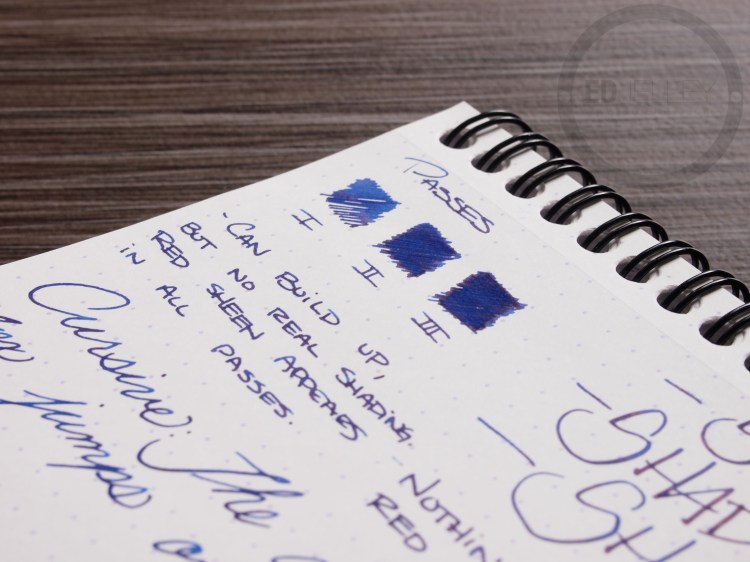 PASSES
I
II
III
· CAN BUILD UP,
BUT NO REAL SHADING.
RED SHEEN APPEARS
IN ALL PASSES.
Cursive: The
jumps
NOTHIN
RED
— S
— SHAD
— SH